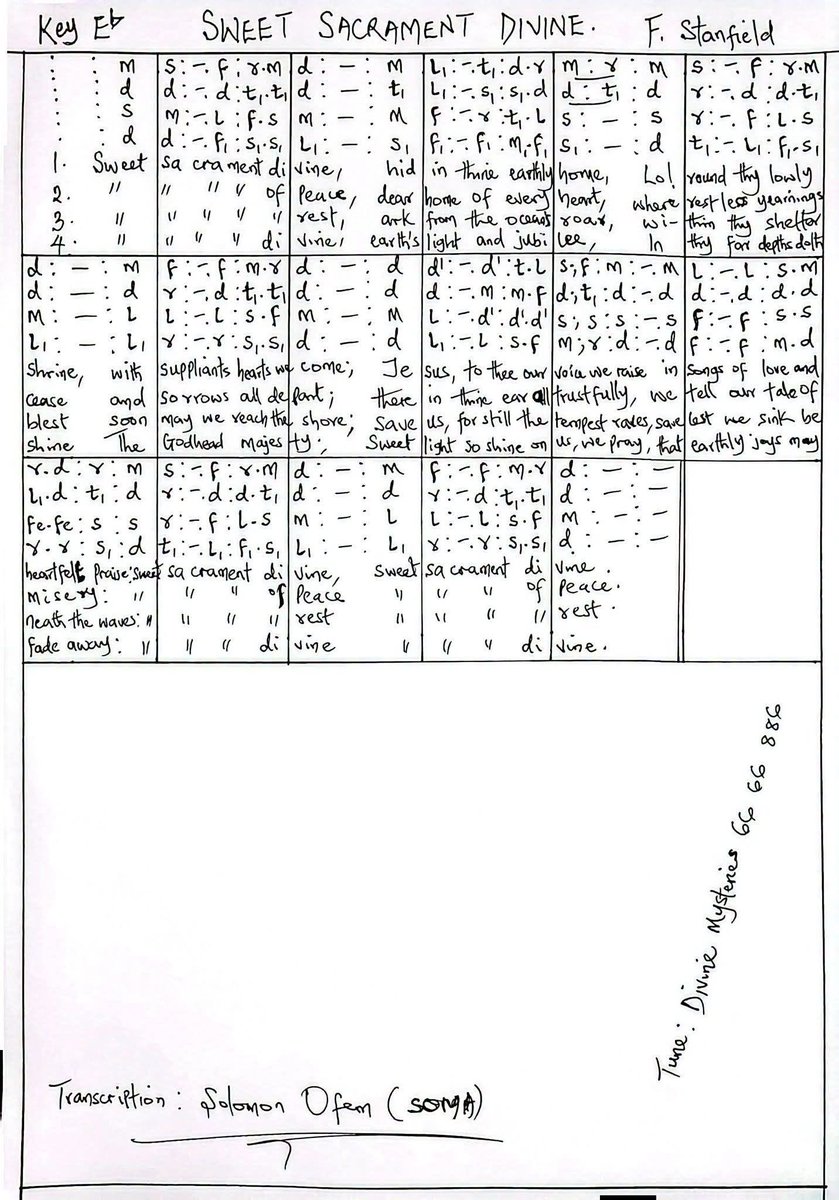 Key E♭ SWEET SACRAMENT DIVINE. F. Stanfield
: : m | s : -. f : r . m | d : - : m | l₁ : -. t₁ : d . r | m : r : m | s : -. f : r . m
: : d | d : -. d : t₁ . t₁ | d : - : t₁ | l₁ : -. s₁ : s₁ . d | d : t₁ : d | r : -. d : d . t₁
: : s | m : -. l : f . s | m : - : m | f : -. r : t₁ . l | s : - : s | r : -. f : l . s
: : d | d : -. f₁ : s₁ . s₁ | l₁ : - : s₁ | f₁ : -. f₁ : m₁ . f₁ | s₁ : - : d | t₁ : -. l₁ : f₁ . s₁
1. Sweet | sa crament di | vine, hid | in thine earthly | home, Lo! | round thy lowly
2. " | " " " of | Peace, dear | home of every | heart, where | restless yearnings
3. " | " " " " | rest, ark | from the oceans | roar, wi- | thin thy shelter
4. " | " " " di | vine, earth's | light and jubi | lee, In | thy far depths doth
d : - : m | f : -. f : m . r | d : - : d | d' : -. d' : t . l | s ; f : m : -. m | l : -. l : s . m
d : - : d | r : -. d : t₁ . t₁ | d : - : d | d : -. m : m . f | d ; t₁ : d : -. d | d : -. d : d . d
m : - : l | l : -. l : s . f | m : - : m | l : -. d' : d' . d' | s ; s : s : -. s | f : -. f : s . s
l₁ : - : l₁ | r : -. r : s₁ . s₁ | d : - : d | l₁ : -. l : s . f | m ; r : d : -. d | f : -. f : m . d
Shrine, with | suppliants hearts we | come; Je | sus, to thee our | voice we raise in | songs of love and
cease and | sorrows all de | part; there | in thine ear all | trustfully, we | tell our tale of
blest soon | may we reach the | shore; save | us, for still the | tempest raves, save | lest we sink be
shine The | Godhead majes | ty; Sweet | light so shine on | us, we pray, that | earthly joys may
r . d : r : m | s : -. f : r . m | d : - : m | f : -. f : m . r | d : - : -
l₁ . d : t₁ : d | r : -. d : d . t₁ | d : - : d | r : -. d : t₁ . t₁ | d : - : -
fe . fe : s : s | r : -. f : l . s | m : - : l | l : -. l : s . f | m : - : -
r . r : s₁ : d | t₁ : -. l₁ : f₁ . s₁ | l₁ : - : l₁ | r : -. r : s₁ . s₁ | d : - : -
heartfelt praise: sweet | sa crament di | vine, sweet | sa crament di | vine.
misery: " | " " of | Peace " | " " of | Peace.
neath the waves: " | " " " | rest " | " " " | rest.
fade away: " | " " di | vine " | " " di | vine.
Tune: Divine Mysteries 66 66 886
Transcription: Solomon Ofem (SOMA)